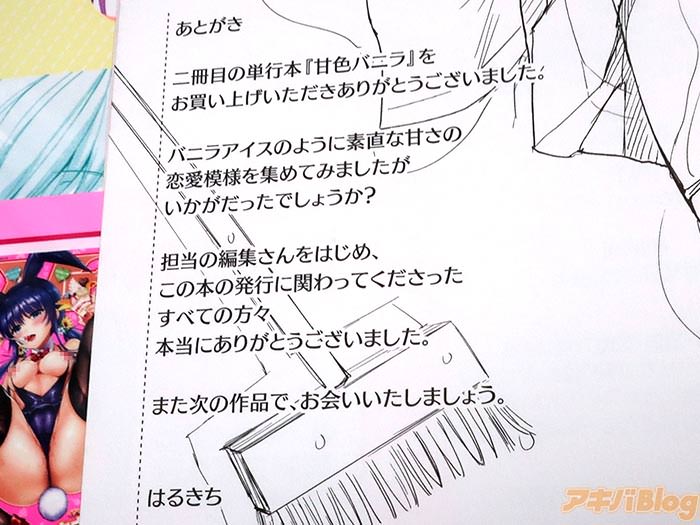 あとがき
二冊目の単行本『甘色バニラ』を
お買い上げいただきありがとうございました。
バニラアイスのように素直な甘さの
恋愛模様を集めてみましたが
いかがだったでしょうか?
担当の編集さんをはじめ、
この本の発行に関わってくださった
すべての方々
本当にありがとうございました。
また次の作品で、お会いいたしましょう。
はるきち
アキバBlog